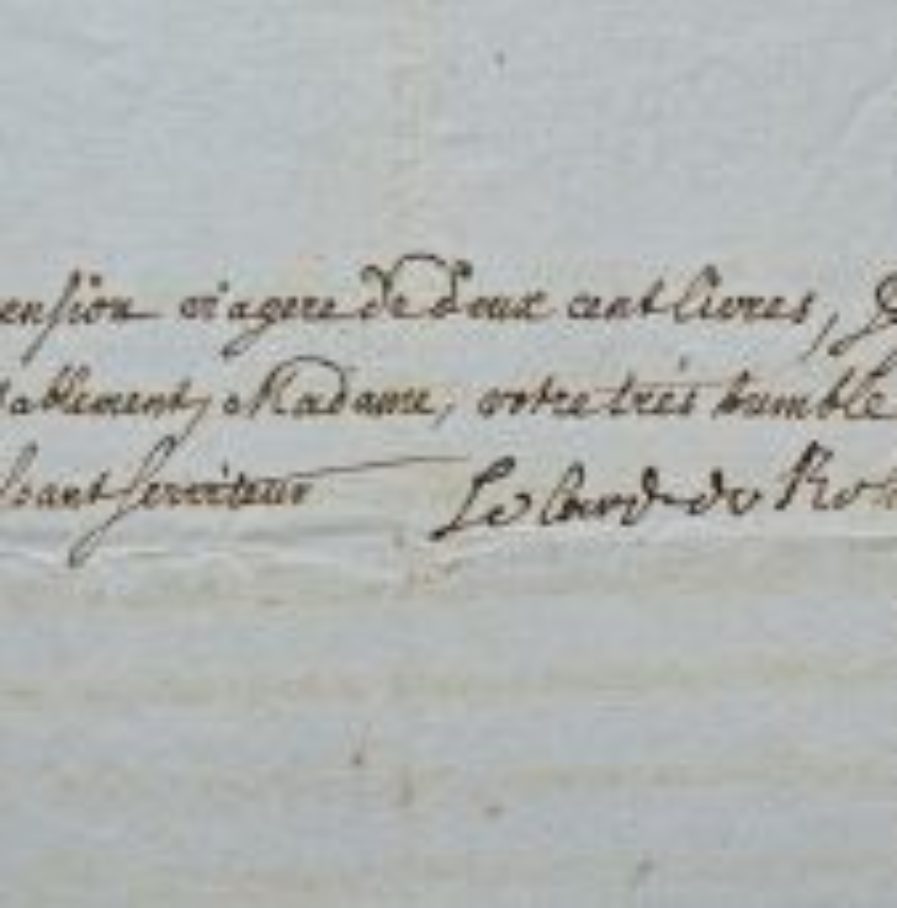 ension viagere de deux cent livres, &
tablement, Madame, votre très humble
issant serviteur Le Card. de Roh